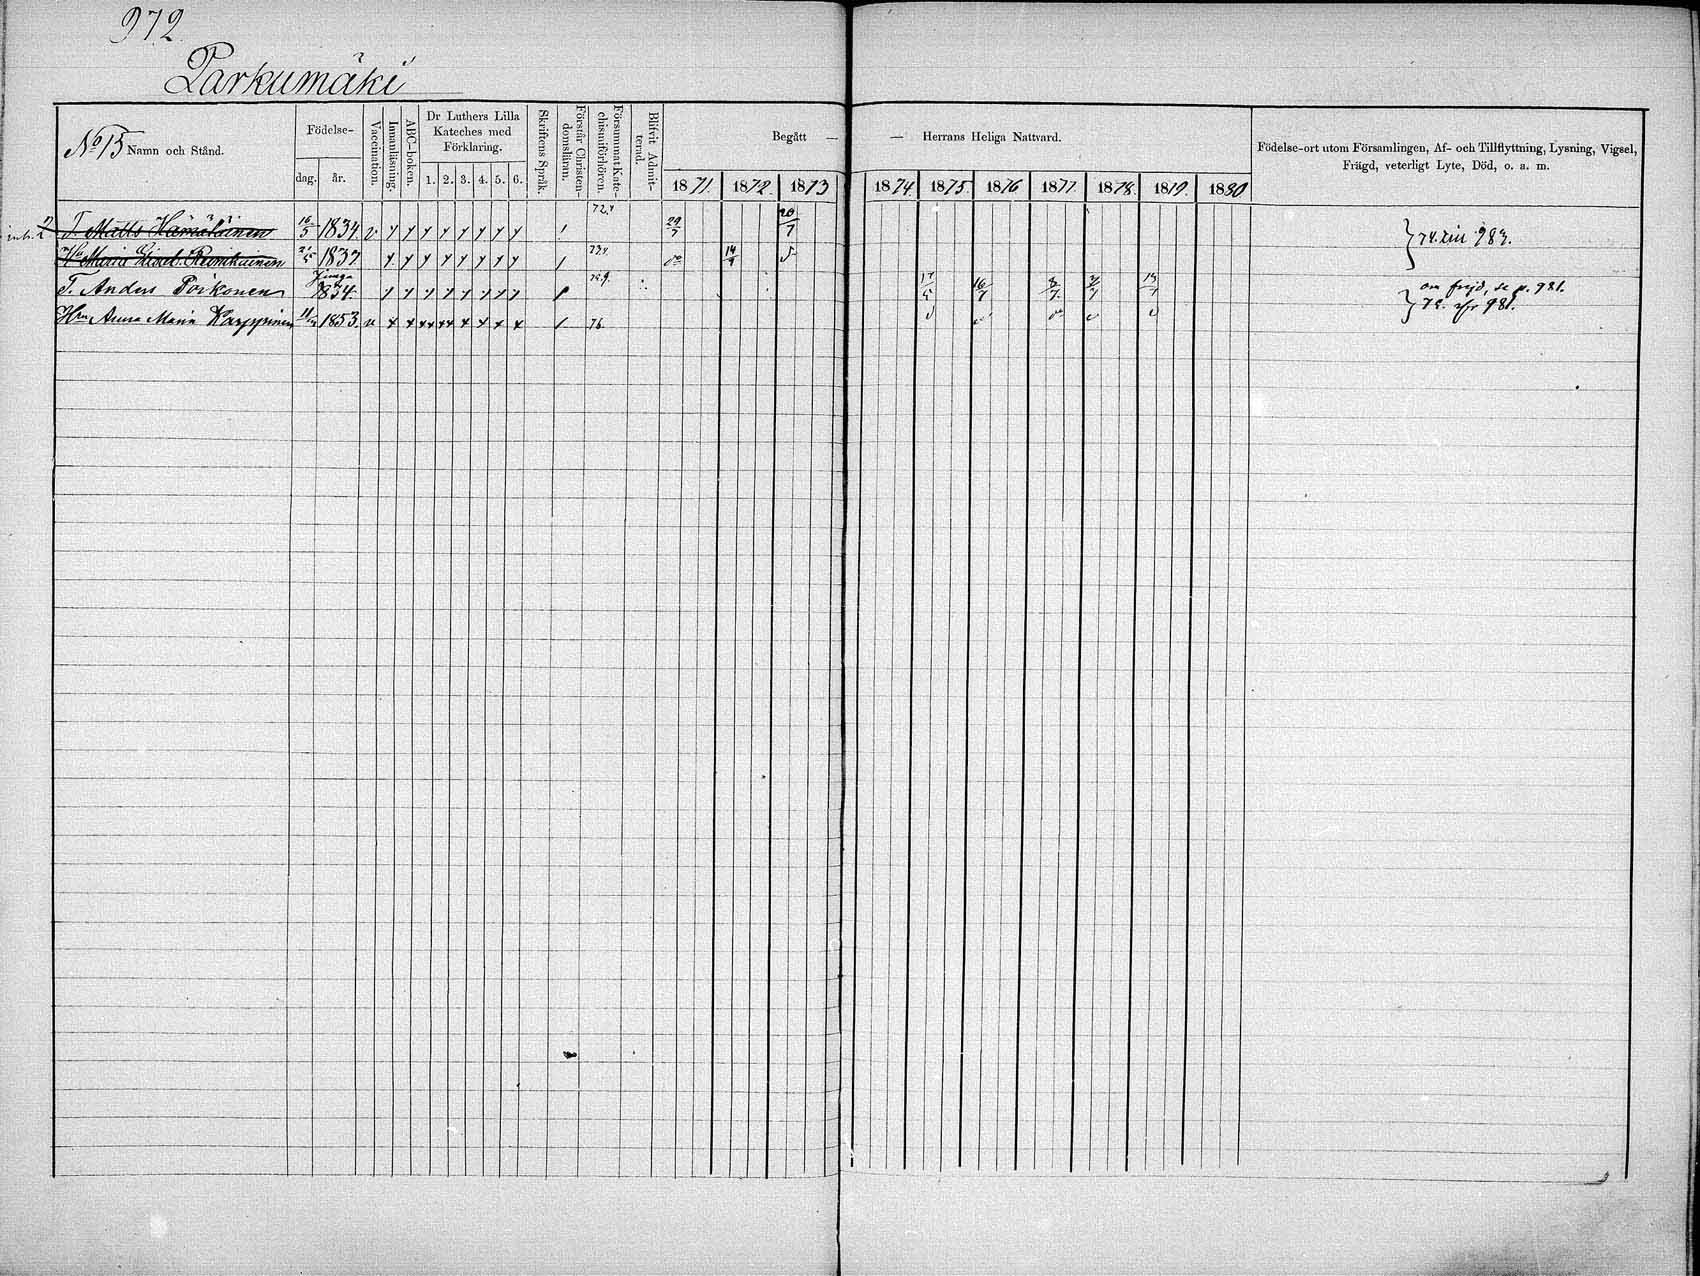 972.
Parkumäki
No 15 Namn och Stånd.
Födelse-
dag. år.
Vaccination.
Innanläsning.
ABC-boken.
Dr Luthers Lilla
Kateches med
Förklaring.
1. 2. 3. 4. 5. 6.
Skriftens Språk.
Förstår Christen-
domsläran.
Försummat Kate-
chismiförhören.
Blifvit Admit-
terad.
Begått — — Herrans Heliga Nattvard.
1871. 1872. 1873 1874. 1875. 1876 1877. 1878. 1879. 1880
Födelse-ort utom Församlingen, Af- och Tillflyttning, Lysning, Vigsel,
Frägd, veterligt Lyte, Död, o. a. m.
T. Matts Hämäläinen 16/5 1834. v 72. 29/7 20/7 74. 983.
Hu Maria 1837 73. 14/9
T. Anders Poikonen 1854. 17/5 16/7 om frejd, se p. 981.
Hru Anna Maria Karppinen 1853. v 76. 75. 981.